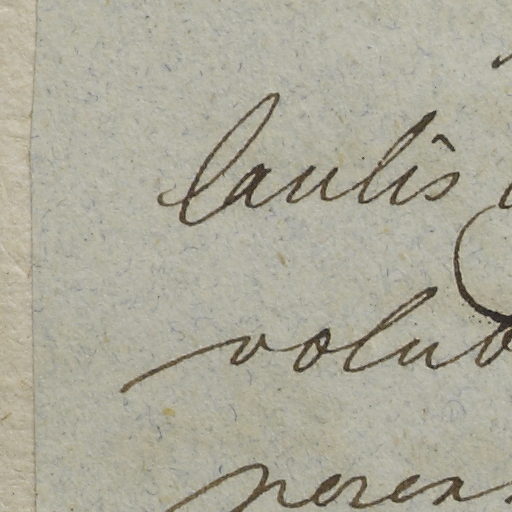 Caulis
volub
peren